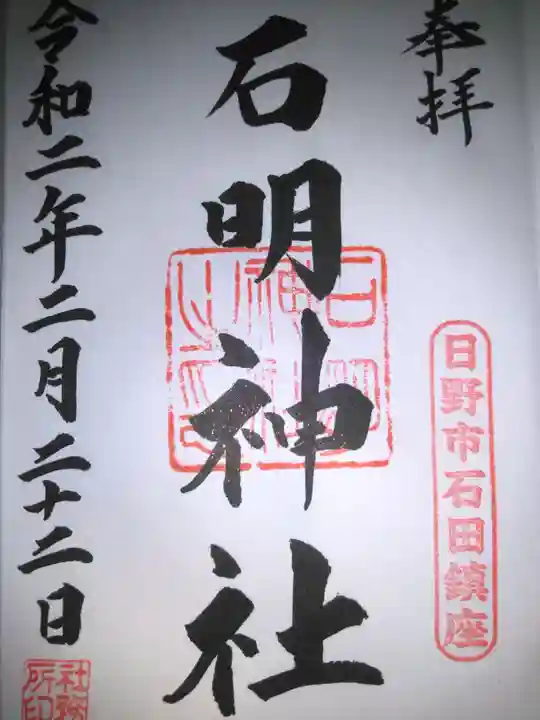 奉拝
日野市石田鎮座
石明神社
令和二年二月二十二日
社務
所印